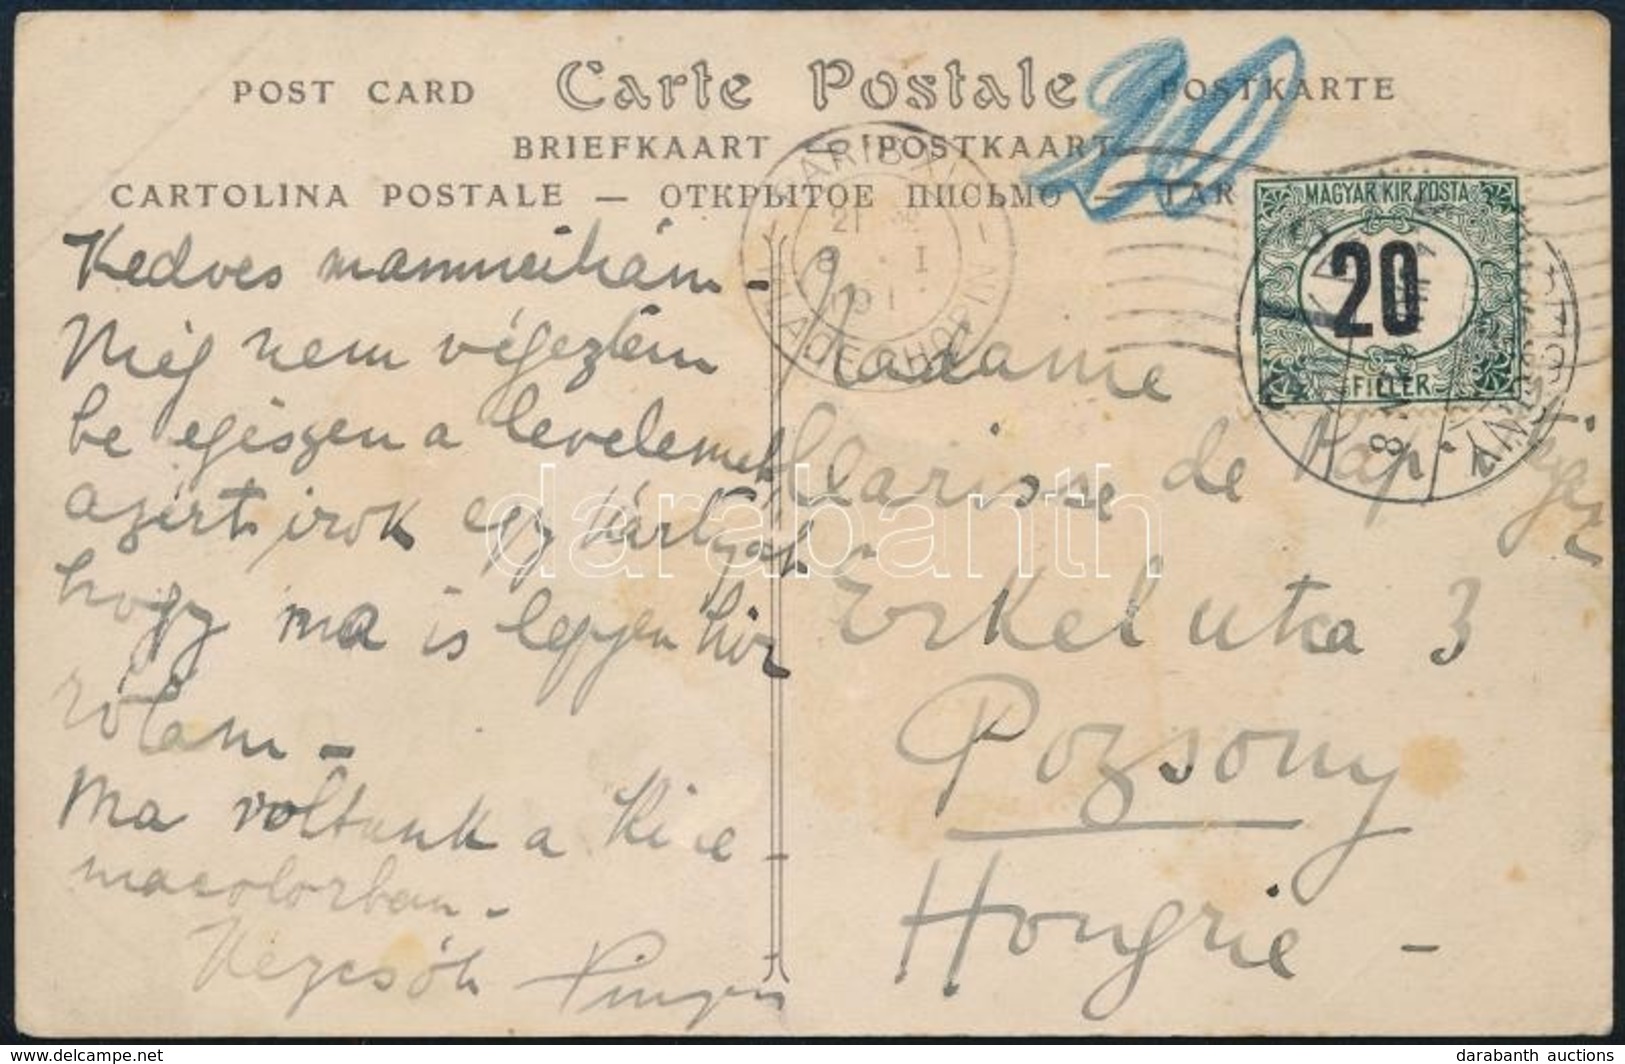 POST CARD Carte Postale POSTKARTE
20
BRIEFKAART — POSTKAART
CARTOLINA POSTALE — ОТКРЫТОЕ ПИСЬМО — TAR
PARIS XI
21
I
MAGYAR KIR. POSTA
20
FILLÉR
POZSONY
Kedves mammicikám –
Még nem végeztem
be egészen a levelemet
azért irok egy kártyát
hogy ma is legyen hir
rólam –
Ma voltunk a Kine–
macolorban –
Kezcsók
Madame
Clarisse de
Erkel utca 3
Pozsony
Hongrie –
darabanth
darabanth auctions
www.delcampe.net